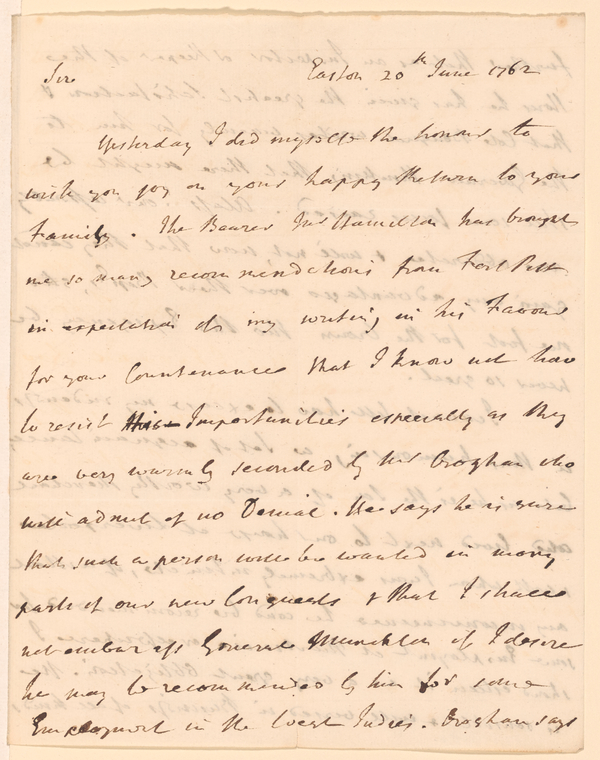 Sir Easton 20th June 1762
Yesterday I did myself the honour to
wish you joy on your happy Return to your
Family. The Bearer Mr Hamilton has brought
me so many recommendations from Fort Pitt
in expectation of my writing in his Favour
for your Countenance that I know not how
to resist this Importunities especially as they
are very warmly seconded by Mr Croghan who
will admit of no Denial. He says he is sure
that such a person will be wanted in many
parts of our new Conquests & that I shall
not embarass General Monckton if I desire
he may be recommended by him for some
Employment in the West Indies. Croghan says